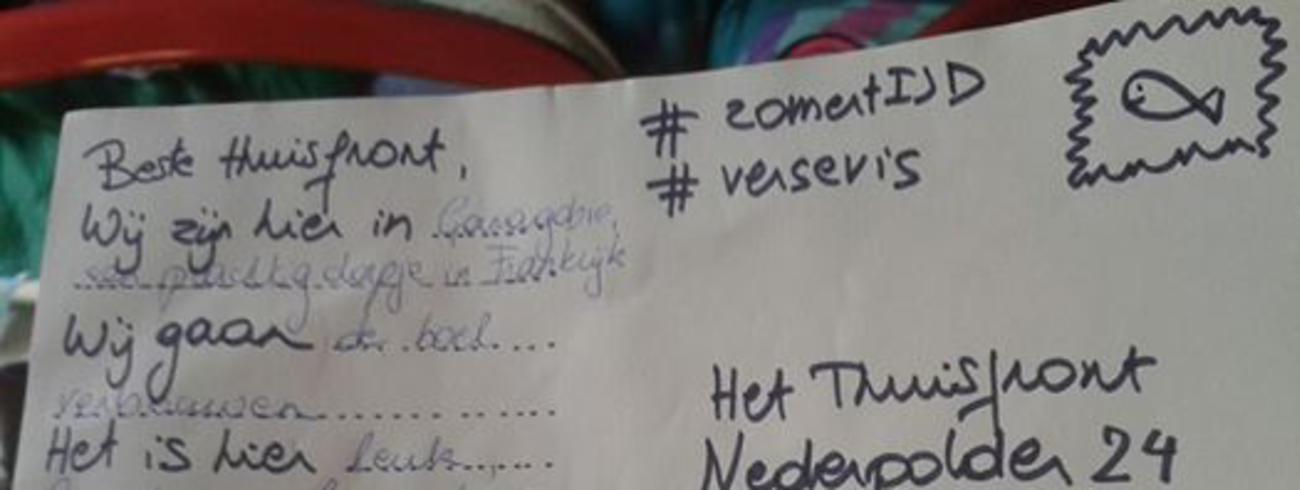 Beste thuisfront,
Wij zijn hier in Ganagobie,
een prachtig dorpje in Frankrijk
Wij gaan de boel
verbouwen
Het is hier leuk
# zomertIJD
# versevis
Het Thuisfront
Nederpolder 24